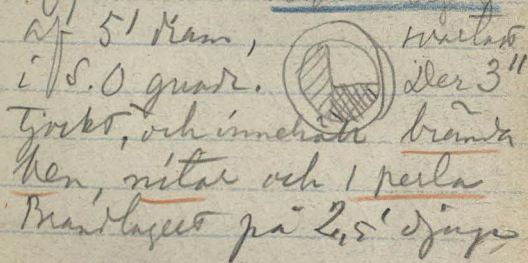 af 5' diam, svartast
i S.O quadr. Der 3"
tjockt, och innehöll brända
ben, nitar och 1 perla
Brandlagret på 2,5' djup,